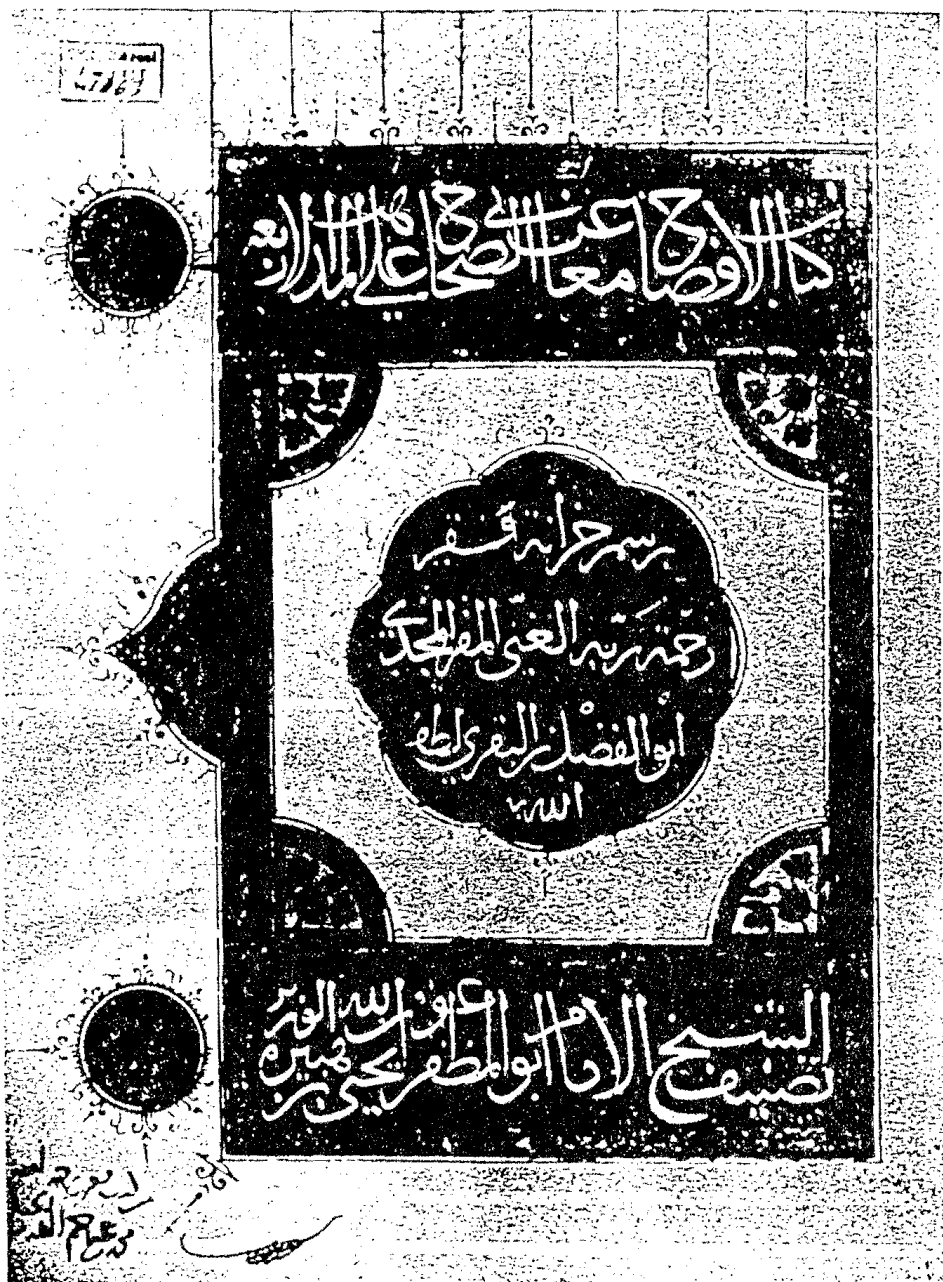 كتاب الافصاح عن معاني الصحاح على المذاهب الاربعة
برسم خزانة فقير
رحمة ربه الغني المقر المجدي
ابو الفضل بن البقري لطف
الله به
تصنيف الشيخ الامام ابو المظفر عون الله الوزير يحيى بن هبيرة